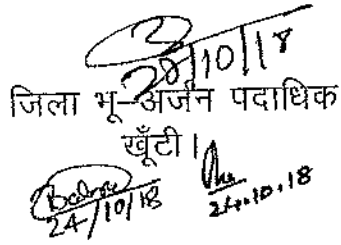 24/10/18
जिला भू-अर्जन पदाधिक
खूँटी।
24/10/18
24.10.18